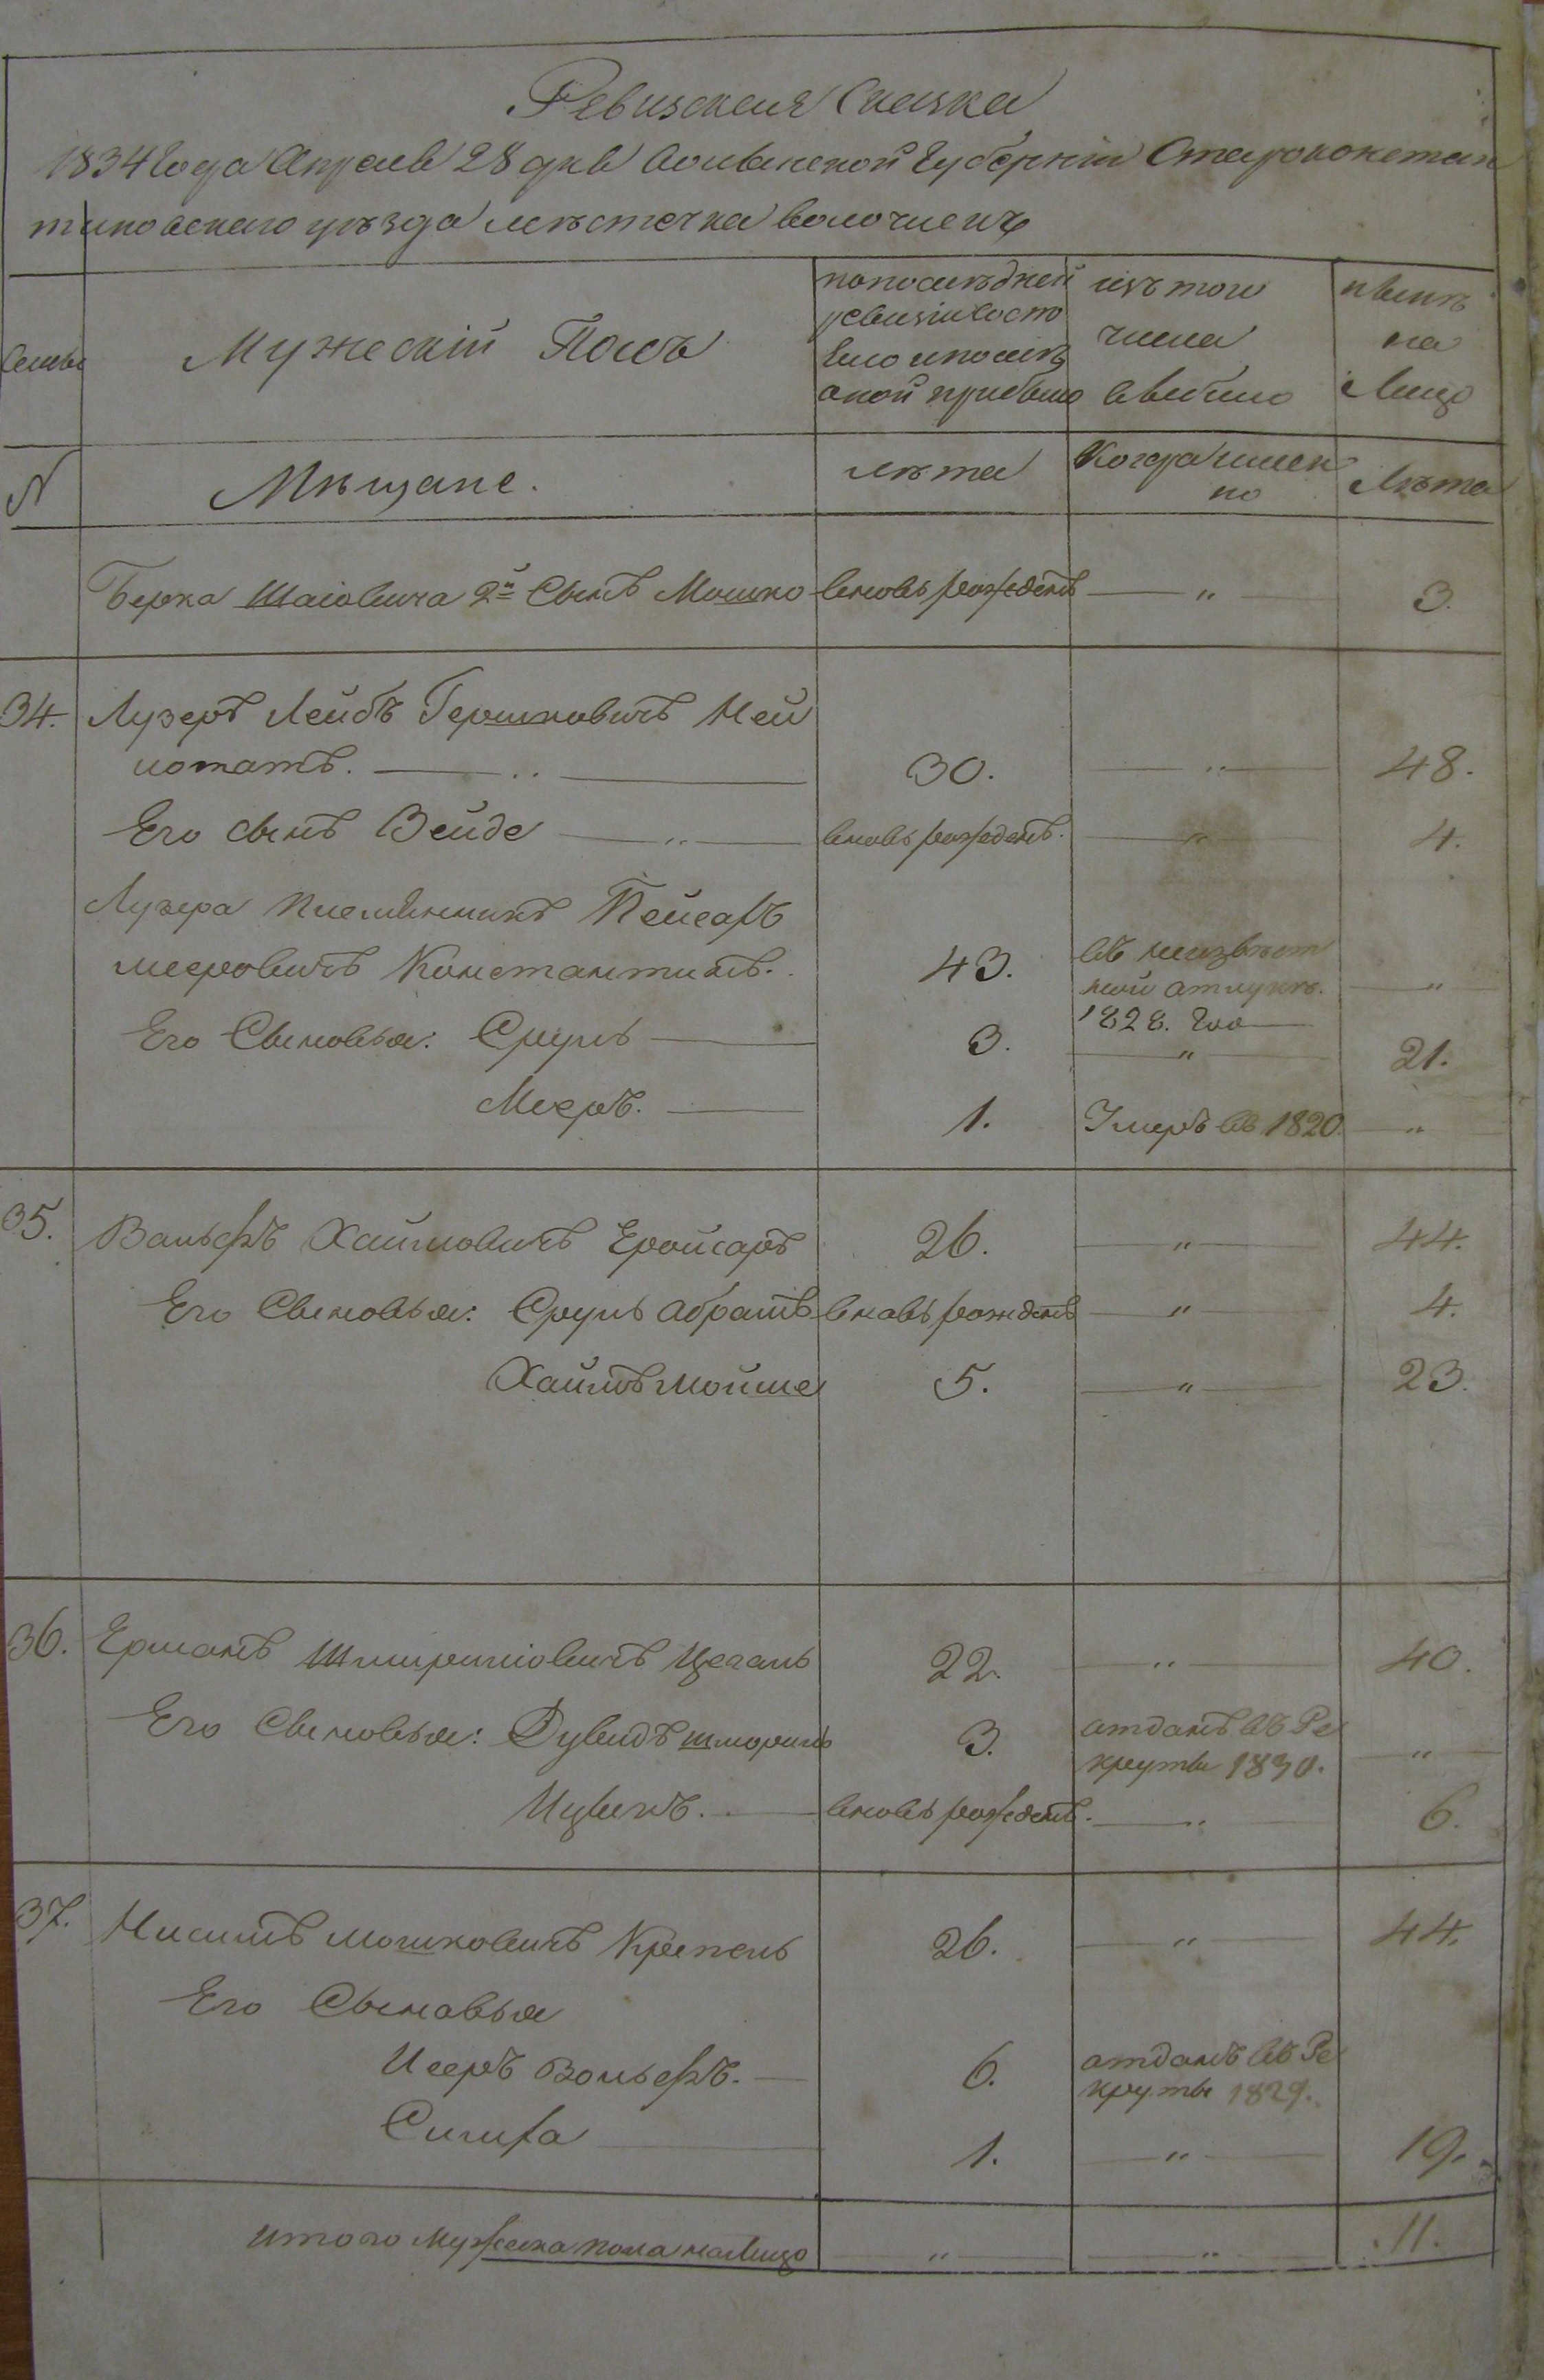 Ревизская Сказка
1834 Года Апреля 28 дня Волынской Губернiи Староконстан
тиновскаго уѣзда мѣстечка Волочискъ
Семьи
Мужескiй Полъ
попослѣдней
ревизiи Состо
яло ипослѣ
оной прибыло
изъ того
числа
выбыло
нынѣ
на
Лицо
N
Мѣщане.
Лѣта
Когда имен
но
Лѣта
Берка Шаiовича 2й Сынъ Мошко вновь рожденъ — " — 3.
34. Лузеръ Лейбъ Гершковичъ Ней
потатъ. — " — 30. — " — 48.
Его сынъ Зейде — " — вновь рожденъ. — " — 4.
Лузера племянникъ Пейсахъ
мееровичъ Константинъ. 43. въ неизвѣст
ной атлучкѣ. — " —
1828. Го
Его Сыновья: Сруль — 3. — " — 21.
Мееръ. — 1. Умеръ въ 1820. — " —
35. Вольфъ Хаимовичъ Еройсаръ 26. — " — 44.
Его Сыновья: Сруль Абрамъ вновь рожденъ — " — 4.
Хаимъ Мойше 5. — " — 23.
36. Ерманъ Шмириловичъ Цегаль 22. — " — 40.
Его Сыновья: Дувидъ шмориль 3. атданъ въ Ре
круты 1830. — " —
Ицикъ. — вновь рожденъ. — " — 6.
37. Нисимъ Мошковичъ Крепель 26. — " — 44.
Его Сыновья
Исеръ Вольфъ. — 6. атданъ въ Ре
круты 1829.
Симха — 1. — " — 19.
итого Мужеска пола налицо — " — — " — 11.